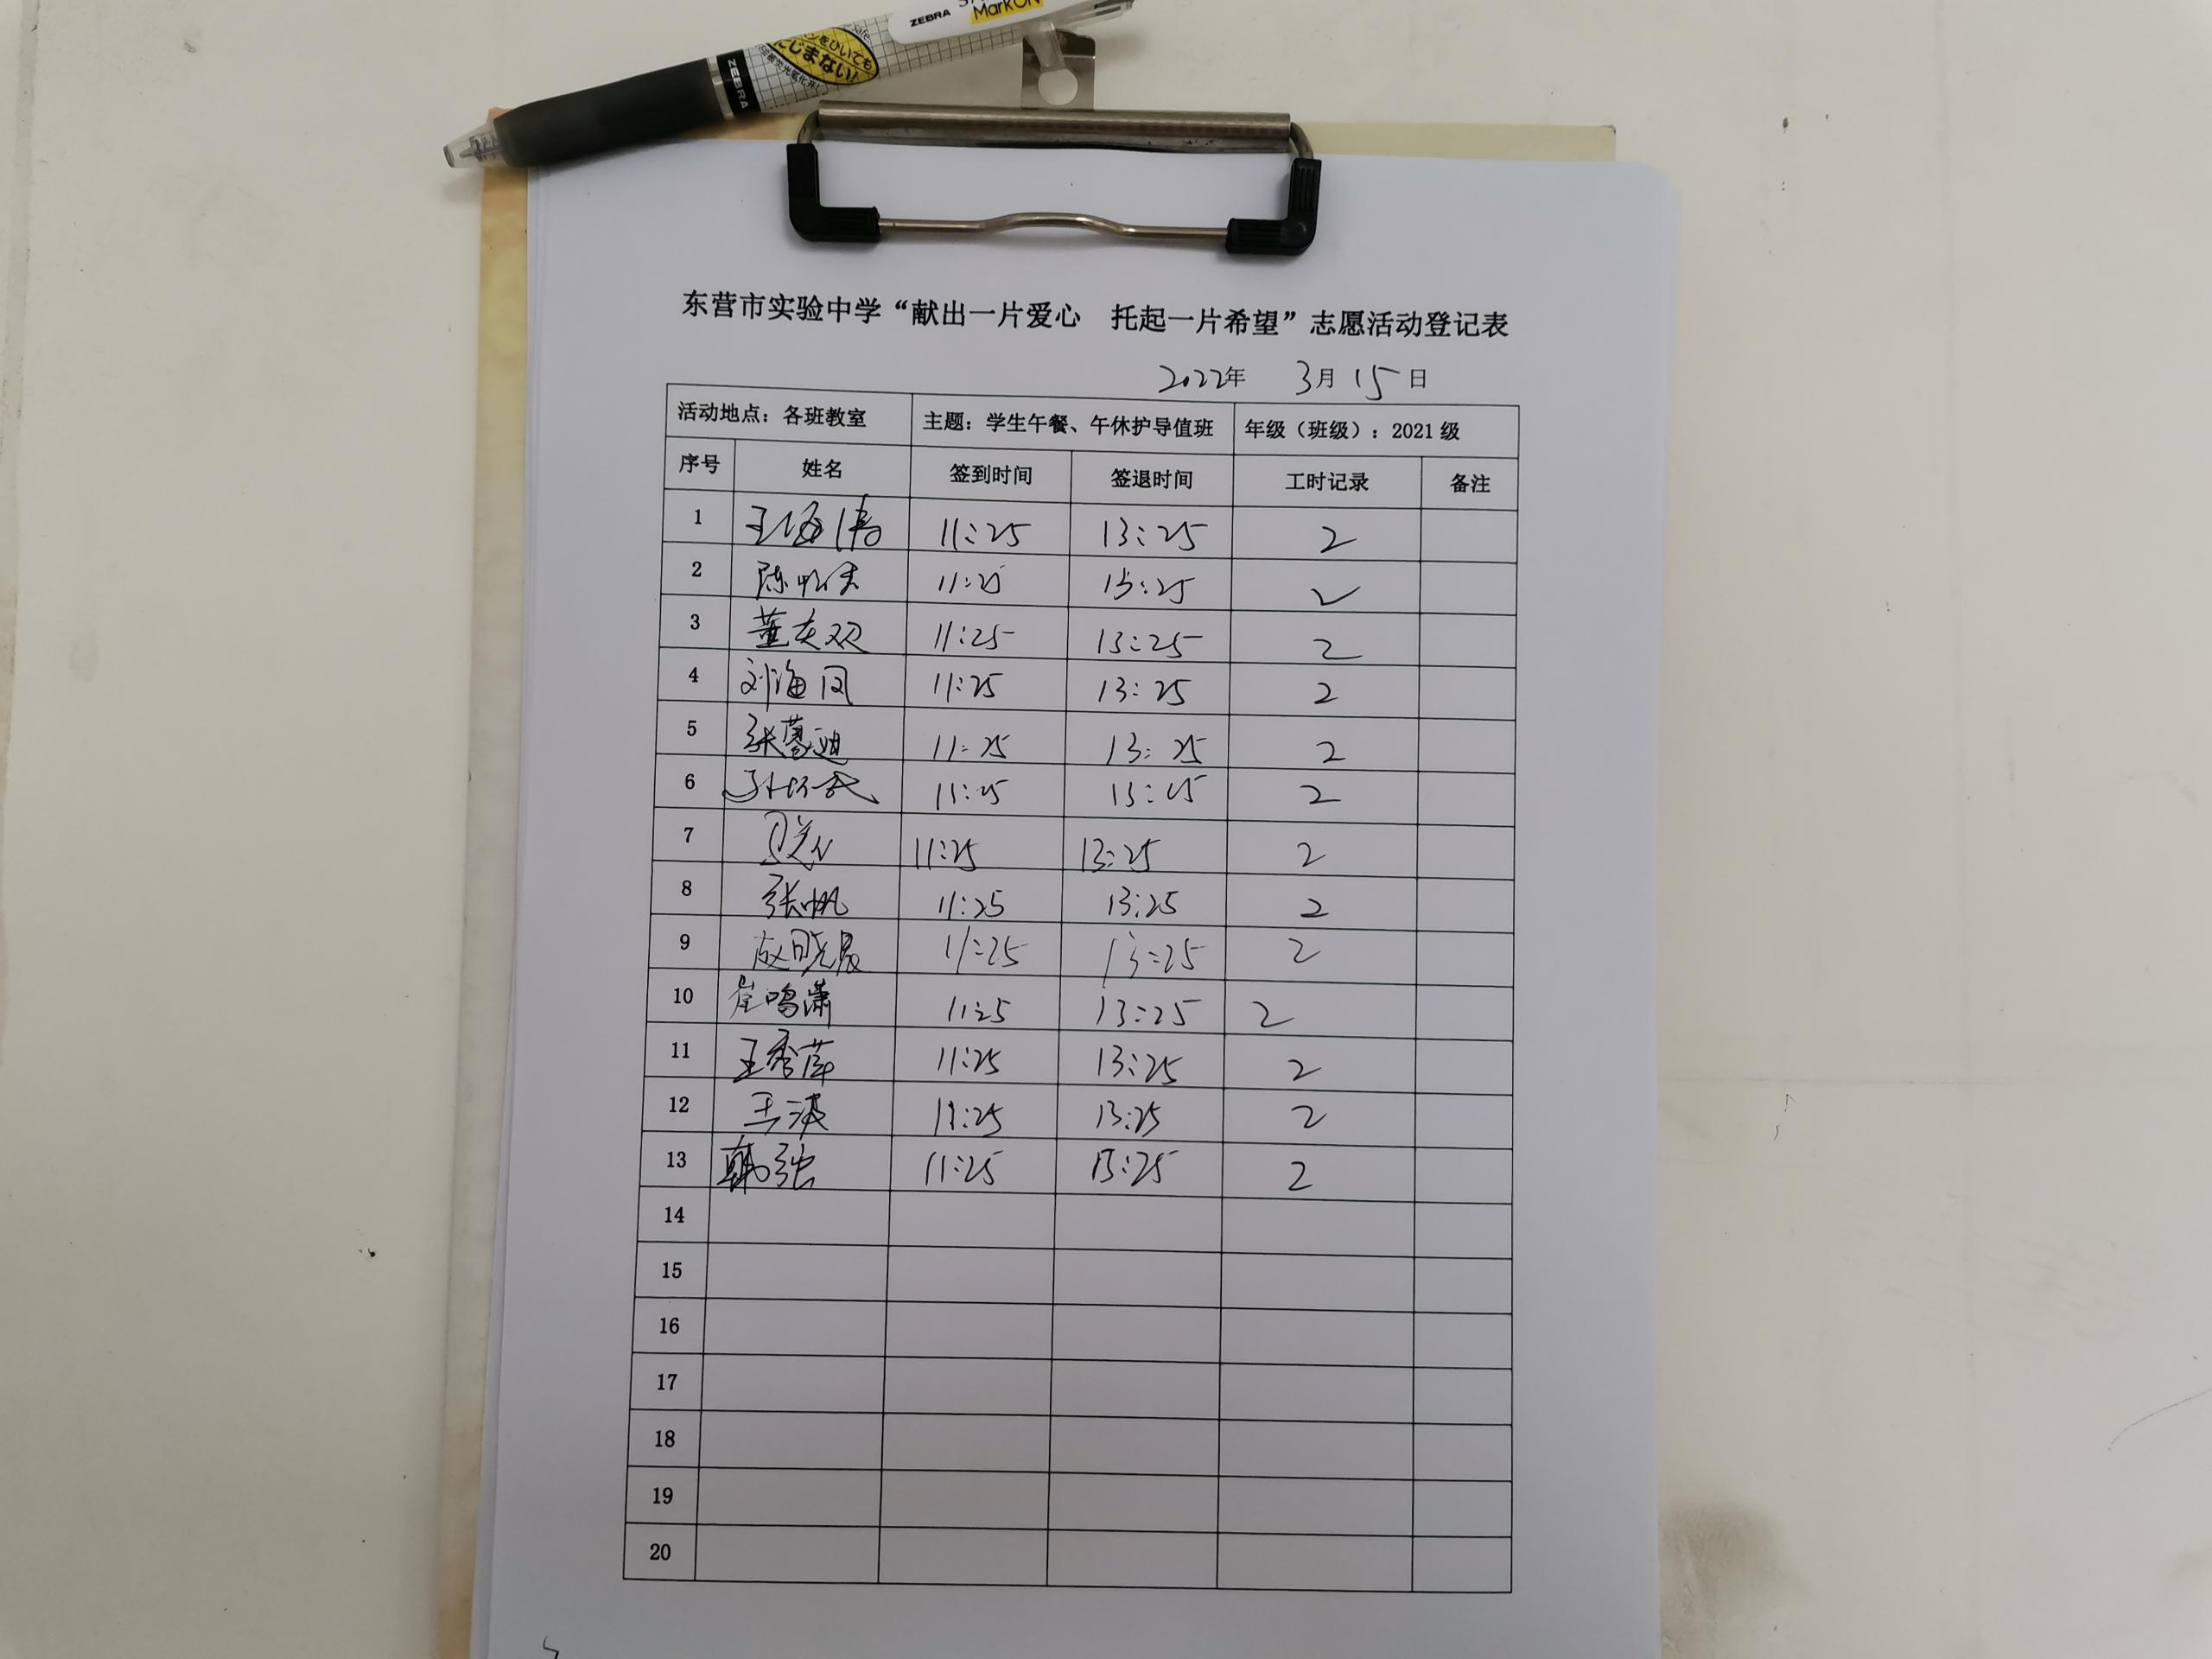 ZEBRA
MarkON
ZEBRA
にじまない!
东营市实验中学“献出一片爱心 托起一片希望”志愿活动登记表
2022年 3月15日
活动地点：各班教室 主题：学生午餐、午休护导值班 年级（班级）：2021级
序号 姓名 签到时间 签退时间 工时记录 备注
1 王海倩 11:25 13:25 2
2 陈 11:25 13:25 2
3 董 双 11:25 13:25 2
4 刘海凤 11:25 13:25 2
5 张蔓迪 11:25 13:25 2
6 11:25 13:25 2
7 11:25 13:25 2
8 张帆 11:25 13:25 2
9 赵晓晨 11:25 13:25 2
10 崔鸣潇 11:25 13:25 2
11 王秀萍 11:25 13:25 2
12 王波 11:25 13:25 2
13 韩强 11:25 13:25 2
14
15
16
17
18
19
20